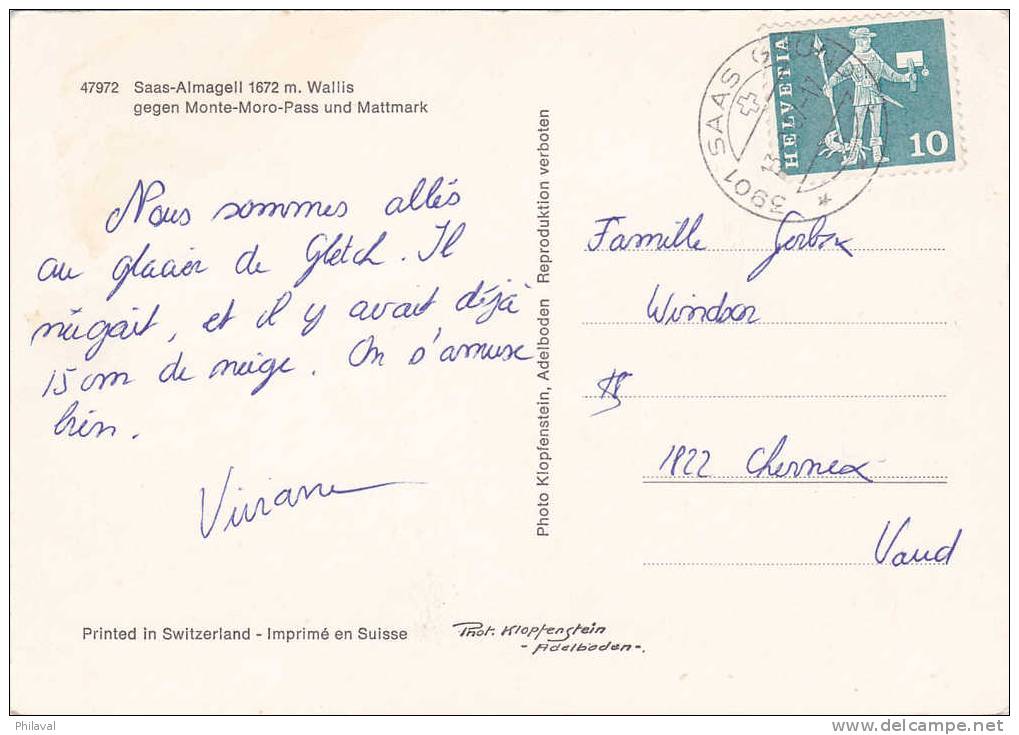 47972 Saas-Almagell 1672 m. Wallis
gegen Monte-Moro-Pass und Mattmark
Nous sommes allés
au glacier de Gletch. Il
neigait, et il y avait déjà
15 cm de neige. On s'amuse
bien.
Viviane
Printed in Switzerland - Imprimé en Suisse
Phot. Klopfenstein
- Adelboden -.
Photo Klopfenstein, Adelboden Reproduktion verboten
3901 SAAS
HELVETIA
10
Famille
Windsor
1822 Chernex
Vaud
Philaval
www.delcampe.net